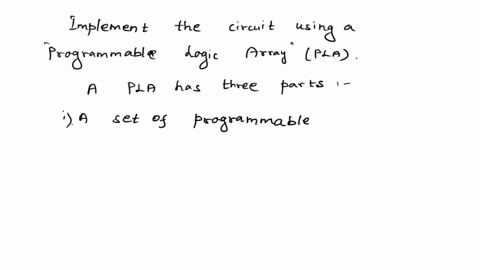 "Implement the circuit using a
"Programmable Logic Array" (PLA).
A PLA has three parts :-
i). A set of programmable